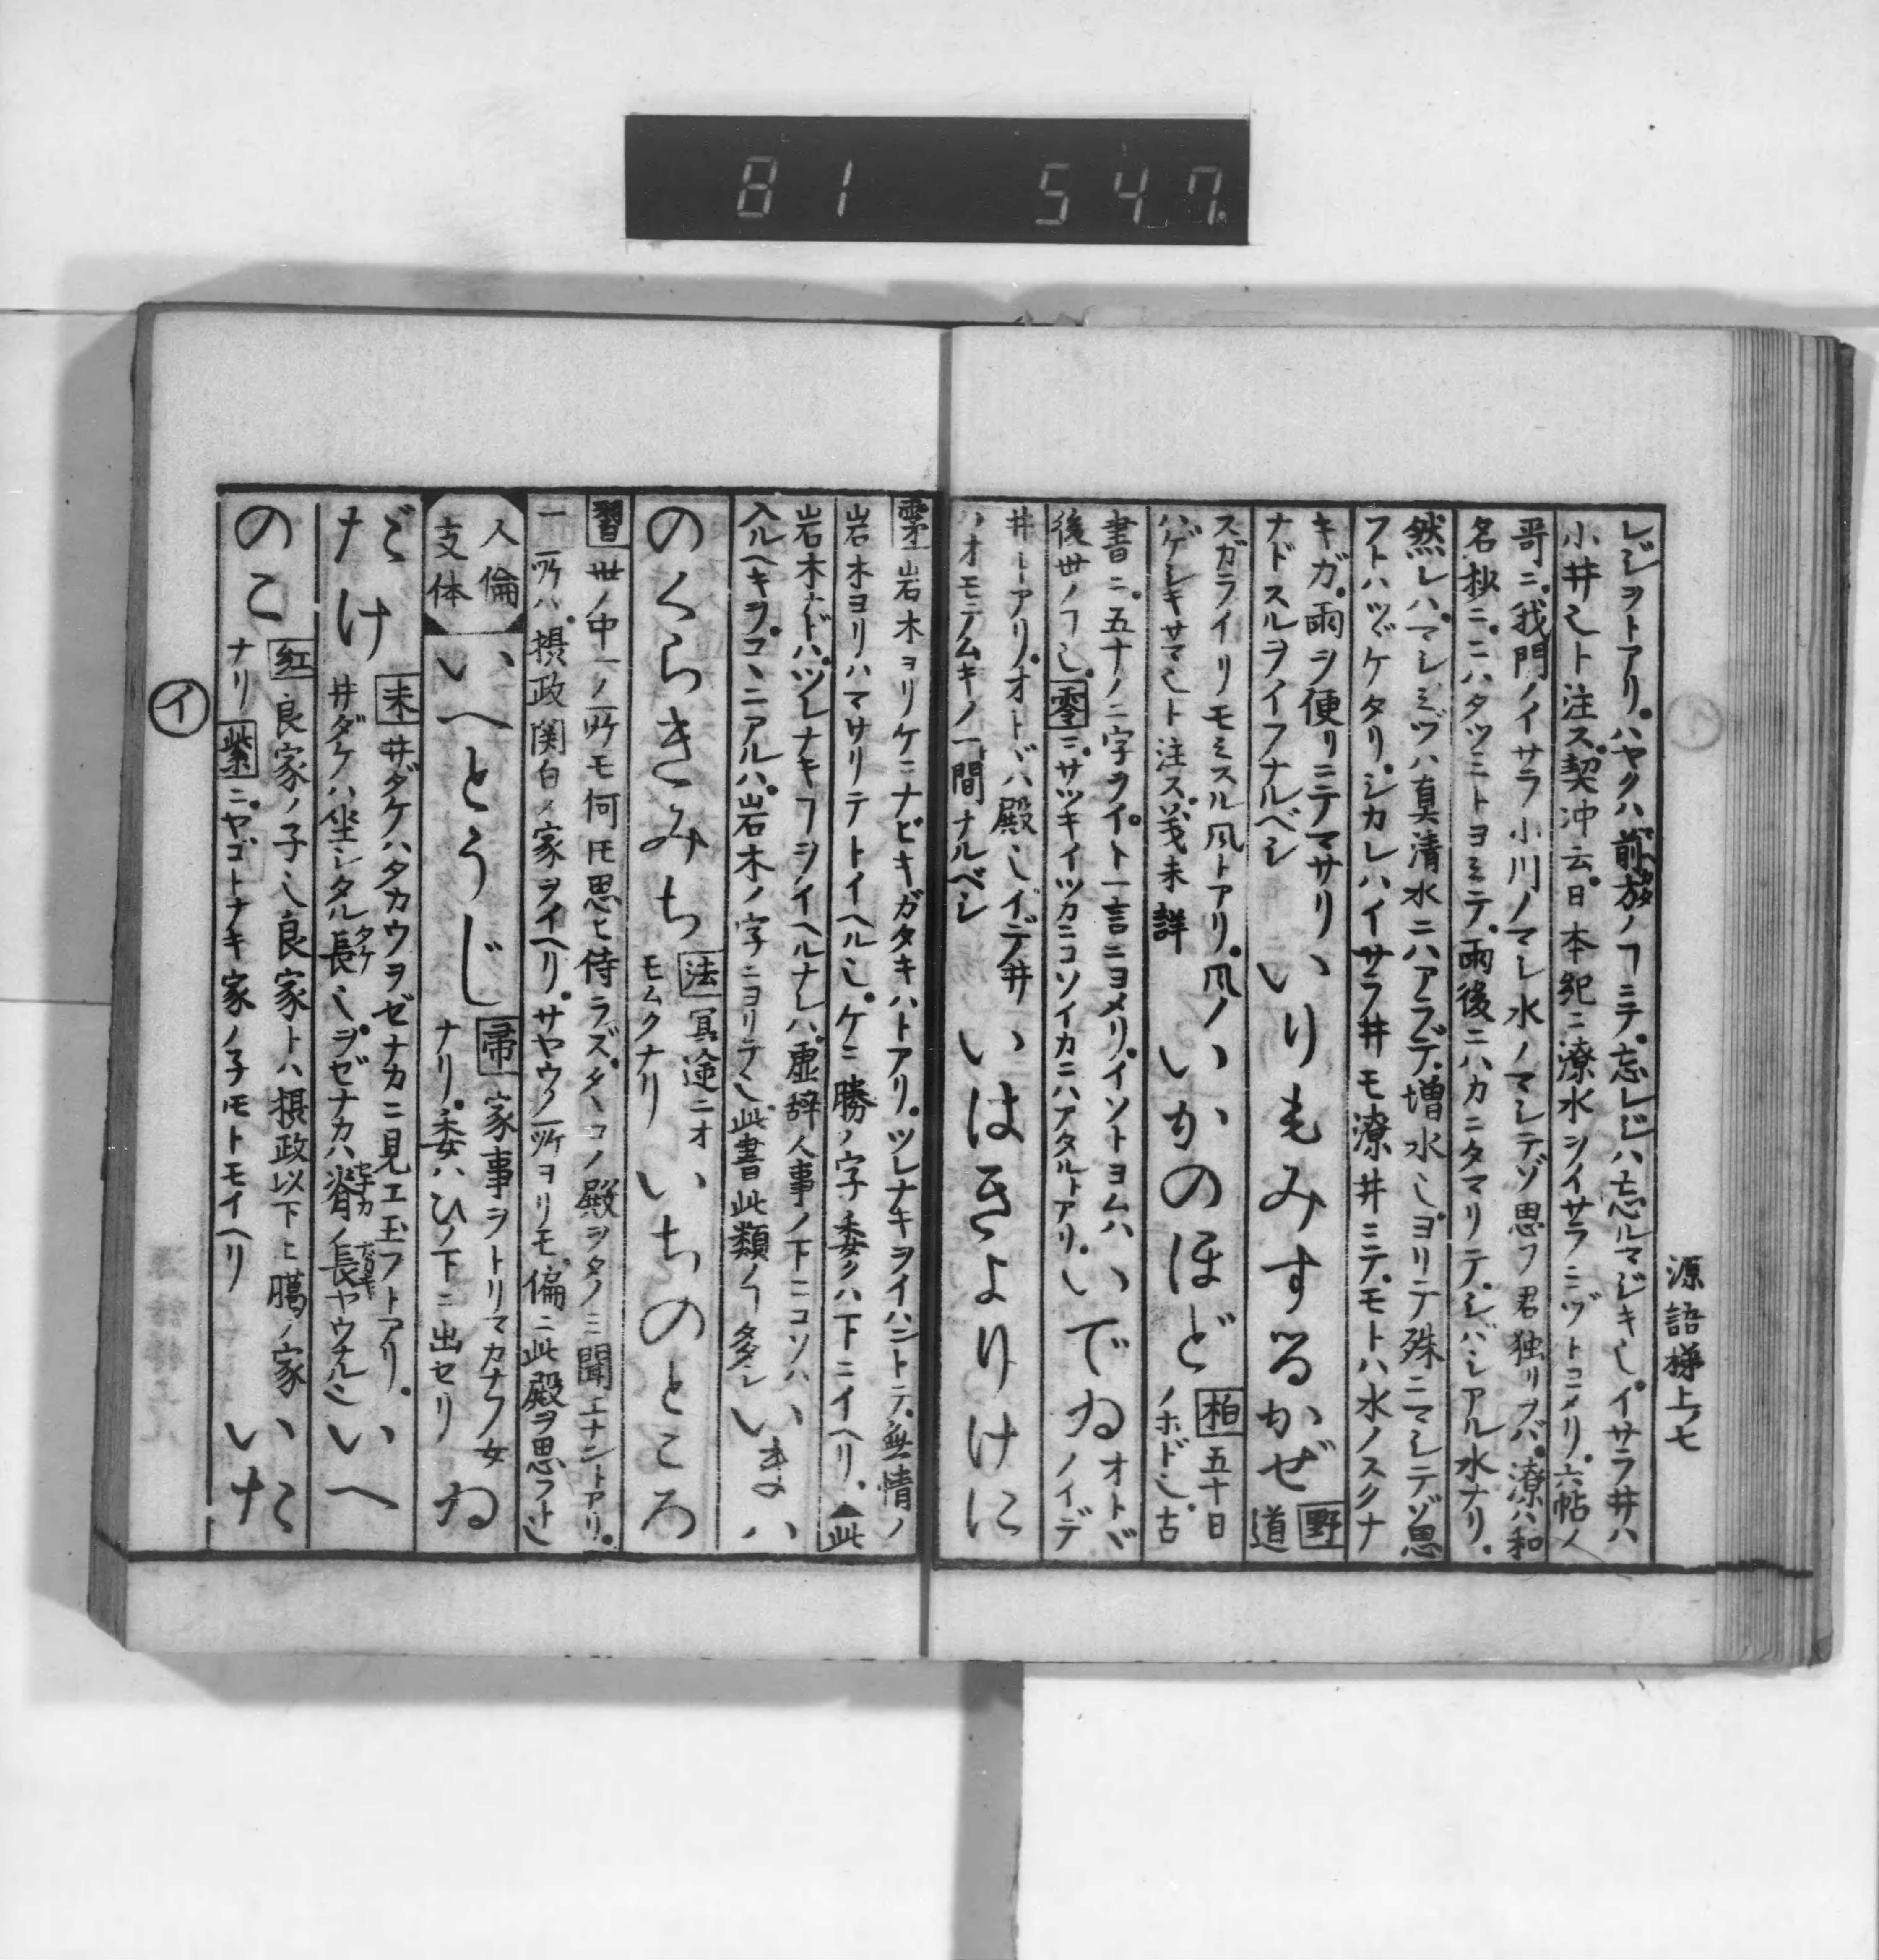 81 547.
源語梯上ノ七
レジヲトアリ。ハヤクハ前方ノヿニテ。忘レジハ忘ルマジキ也。イサラ井ハ
小井也ト注ス。契沖云。日本紀ニ潦水ヲイサラニヅトヨメリ。六帖ノ
哥ニ。我門ノイサラ小川ノマシ水ノマシテゾ思フ君独リヲバ。潦ハ和
名抄ニ。ニハタヅミトヨミテ。雨後ニハカニタマリテ。シバシアル水ナリ。
然レハ。マシミヅハ真清水ニハアラデ。増水也。ヨリテ殊ニマシテゾ思
フトハツヾケタリ。シカレハイサラ井モ潦井ニテ。モトハ水ノスクナ
キガ。雨ヲ便リニテマサリ
ナドスルヲイフナルベシ
いりもみするかぜ
野 道
スガライリモミスル風トアリ。風ノ
ハゲシキサマ也ト注ス。義未詳
いかのほど
柏 五十日
ノホド也。古
書ニ。五十ノ二字ヲイ。ト一言ニヨメリ。イソトヨムハ
後世ノヿ也。
零ニ。サツキイツカニコソイカニハアタルトアリ。
いでゐ
オトヾ
ノイデ
井トアリ。オトヾハ殿也イデ井
ハオモテムキノ一間ナルベシ
いはきよりけに
岩木ヨリケニナビキガタキハトアリ。ツレナキヲイハントテ。無情ノ
岩木ヨリハマサリテトイヘル也。ケニ勝ノ字委クハ下ニイヘリ。▲此
岩木ナドハ。ツレナキヿヲイヘルナレハ。虚辞人事ノ下ニコソハ
入ルヘキヲ。コヽニアルハ。岩木ノ字ニヨリテ也。此書此類ノヿ多シ
いまは
のくらきみち
法 冥途ニオ
モムクナリ
いちのところ
習 世ノ中ノ一ノ所モ何トモ思ヒ侍ラズ。タヽコノ殿ヲタノミ聞エナントアリ。
一ノ所ハ。摂政関白ノ家ヲイヘリ。サヤウノ一所ヨリモ。偏ニ此殿ヲ思フト也
人倫
支体
いへとうじ
帚 家事ヲトリマカナフ女
ナリ。委ハひノ下ニ出セリ
ゐ
だけ
たけ
末 井ダケハタカウヲゼナカニ見エ玉フトアリ。
井ダケハ坐シタル長也。ヲゼナカハ背ノ長ヤウナル也
いへ
のこ
紅 良家ノ子也良家トハ摂政以下上臈ノ家
ナリ
紫ニ。ヤゴトナキ家ノ子トモトモイヘリ
いた
イ